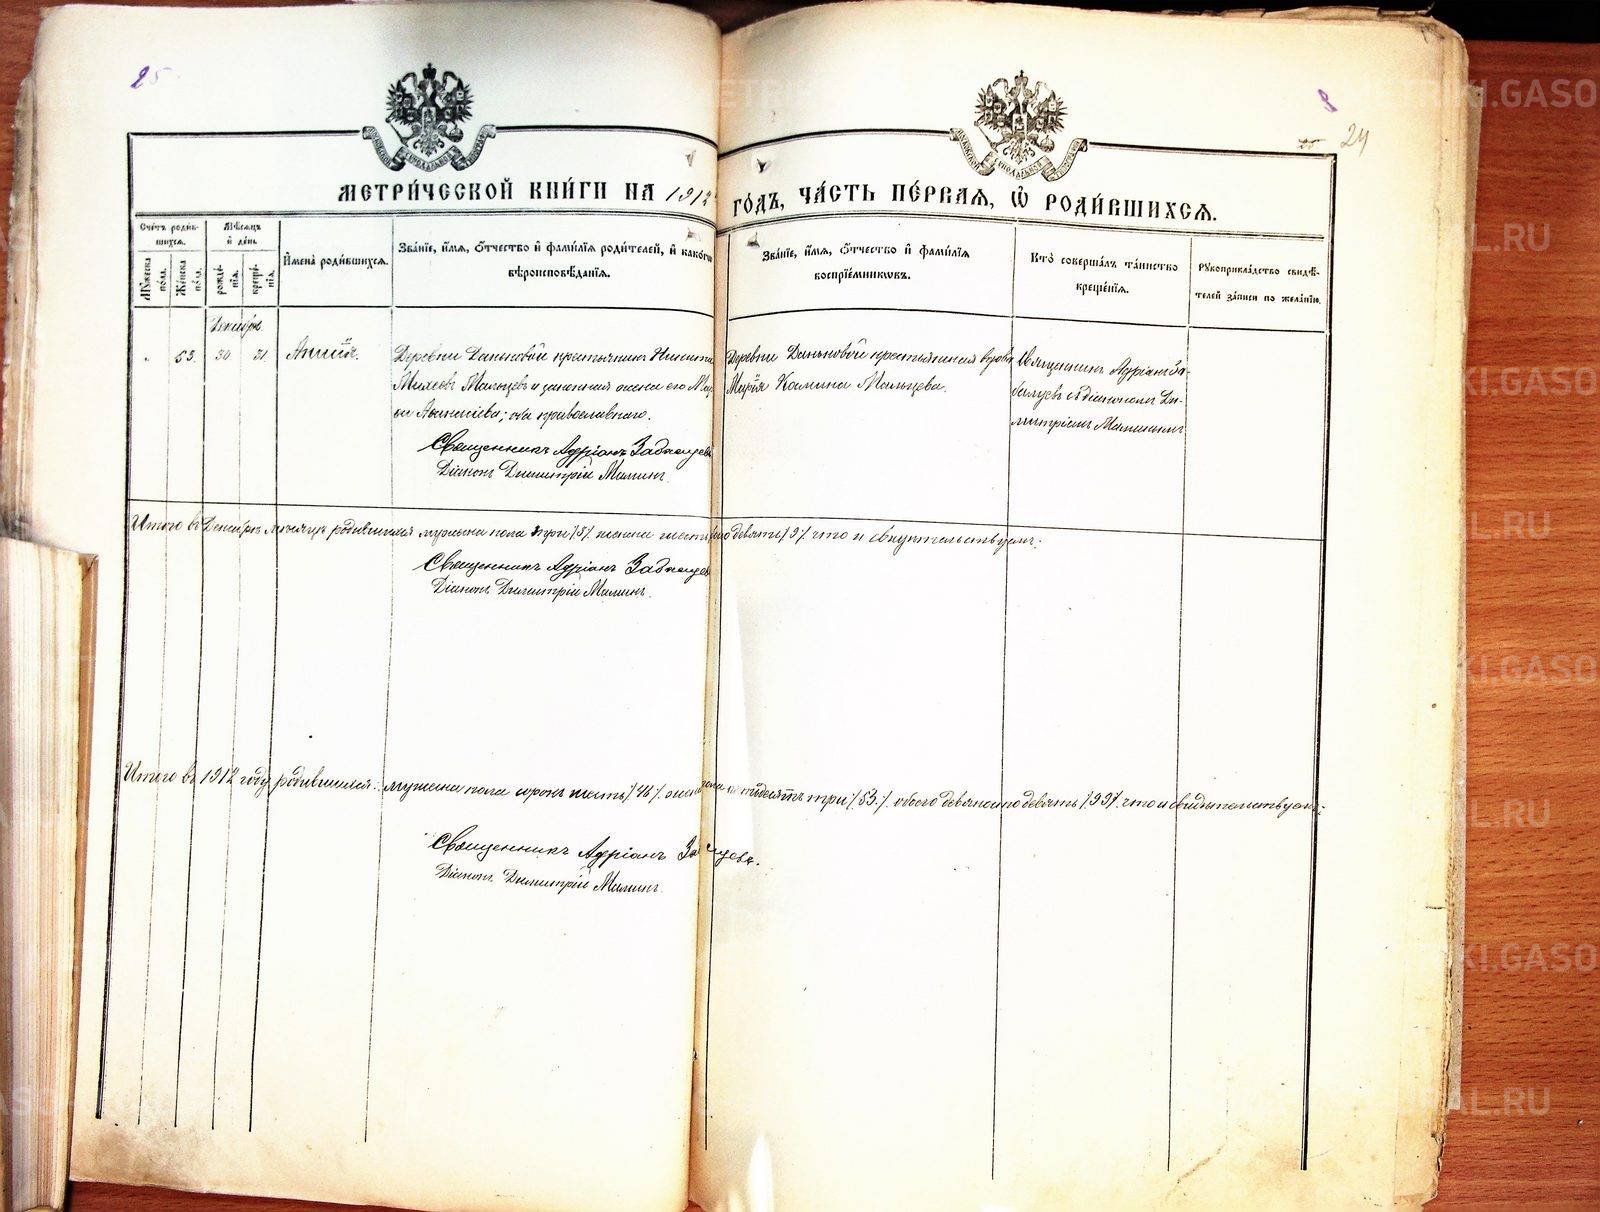 25
24
МЕТРИ́ЧЕСКОЙ КНИ́ГИ НА 1912 ГО́ДЪ, ЧА́СТЬ ПЕ́РВАЯ, Ѽ РОДИ́ВШИХСЯ.
Сче́тъ роди́в-
шихся.
Мѣ́сяцъ
и де́нь
Му́жеска по́ла.
Же́нска по́ла.
рожде́-нїя.
креще́-нїя.
И҆мена̀ роди́вшихся.
Зва́нїе, и҆́мя, ѻ҆́тчество и҆ фами́лїя роди́телей, и҆ како́гѡ
вѣроисповѣ́данїя.
Зва́нїе, и҆́мя, ѻ҆́тчество и҆ фами́лїя
воспрїе́мникѡвъ.
Кто̀ соверша́лъ та́инство
креще́нїя.
Рꙋкоприкла́дство свидѣ́-
телей за́писи по жела́нїю.
Декабрь
53. 30 31
Деревни Даньковой крестьянинъ Никита
Михеевъ Мальцевъ и законная жена его
Афанасіева; оба православнаго.
Священникъ Адріанъ
Діаконъ Димитрій Малинъ.
Деревни Даньковой крестьянская
Марія Мальцева.
Священникъ Адріанъ За-
съ діакономъ Ди-
митріемъ Малинымъ
Итого въ Декабрѣ мѣсяцѣ родившихся мужеска пола три /3/. женска шесть девять /9/ что и свидѣтельствуемъ:
Священникъ Адріанъ
Діаконъ Димитрій Малинъ.
Итого въ 1912 году родившихся: мужеска пола сорокъ шесть /46/. женска пола пятьдесятъ три /53./ обоего девяносто девять /99/. что и свидѣтельствуемъ:
Священникъ Адріанъ
Діаконъ Димитрій Малинъ.
METRIKI.GASO
URAL.RU